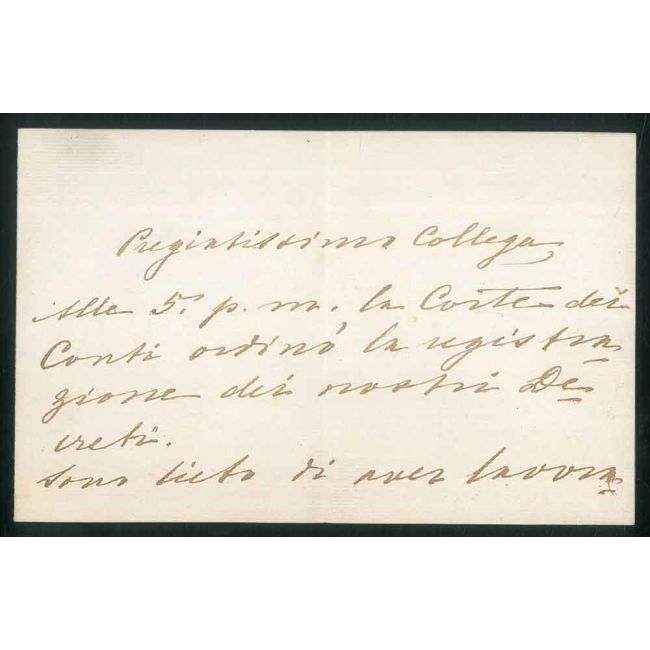 Pregiatissimo Collega,
Alle 5. p. m. la Corte dei
Conti ordinò la registra-
zione dei nostri De-
creti.
Sono lieto di aver lavora-